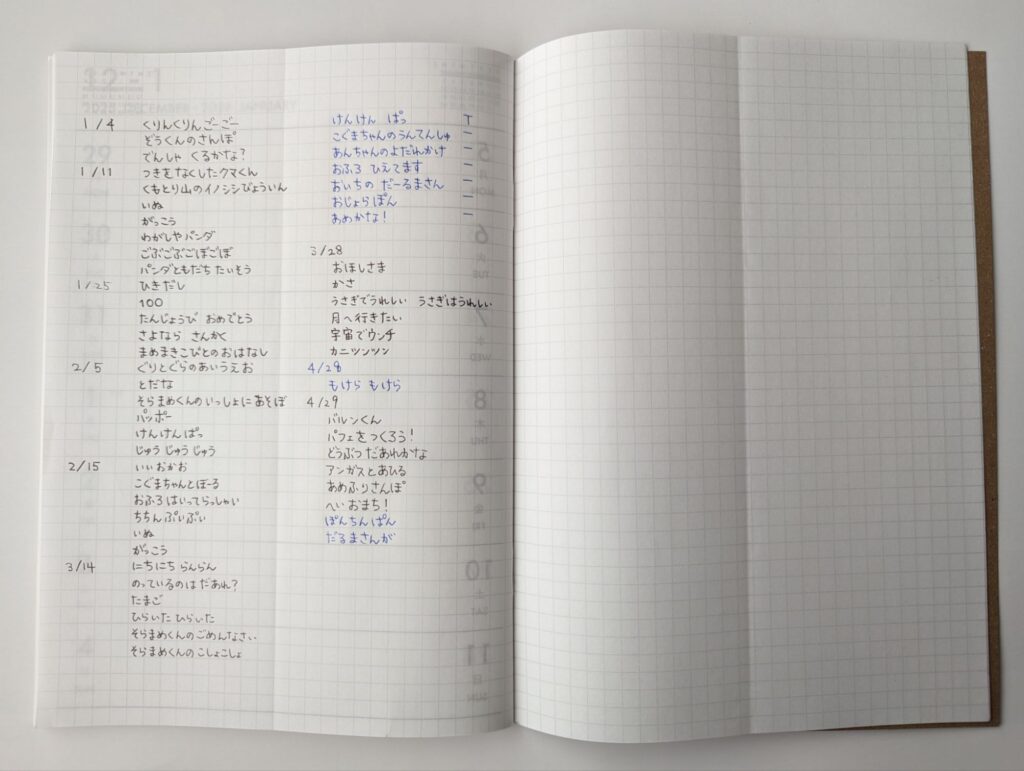 1/4 くりんくりんごーごー
ぞうくんのさんぽ
でんしゃ くるかな?
1/11 つきをなくしたクマくん
くもとり山のイノシシびょういん
いぬ
がっこう
わがしやパンダ
ごぶごぶごぼごぼ
パンダともだちたいそう
1/25 ひきだし
100
たんじょうび おめでとう
さよなら さんかく
まめまきこびとのおはなし
2/5 ぐりとぐらのあいうえお
とだな
そらまめくんのいっしょにあそぼ
パッポー
けんけんぱっ
じゅうじゅうじゅう
2/15 いいおかお
こぐまちゃんとぼーる
おふろはいってらっしゃい
ちちんぷいぷい
いぬ
がっこう
3/14 にちにち らんらん
のっているのはだあれ?
たまご
ひらいたひらいた
そらまめくんのごめんなさい
そらまめくんのこしょこしょ
けんけん ぱっ T
こぐまちゃんのうんてんしゅ 〃
あんちゃんのよだれかけ 〃
おふろ ひえてます 〃
おいちの だーるまさん 〃
おじょらぽん 〃
あめかな! 〃
3/28
おほしさま
かさ
うさぎでうれしい うさぎはうれしい
月へ行きたい
宇宙でウンチ
カニツンツン
4/28
もけら もけら
4/29
バルンくん
パフェをつくろう!
どうぶつだあれかな
アンガスとあひる
あめふりさんぽ
へいおまち!
ぽんちんぱん
だるまさんが